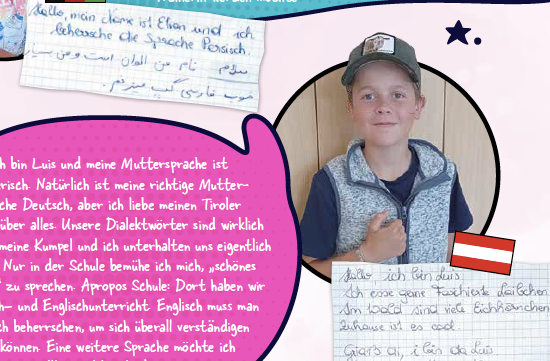 Hallo, mein Name ist Elham und ich
beherrsche die Sprache Persisch.
سلام نام من الهام است و من بسیار
خوب فارسی گپ میزنم.
h bin Luis und meine Muttersprache ist
risch. Natürlich ist meine richtige Mutter-
che Deutsch, aber ich liebe meinen Tiroler
über alles. Unsere Dialektwörter sind wirklich
meine Kumpel und ich unterhalten uns eigentlich
Nur in der Schule bemühe ich mich, „schönes
" zu sprechen. Apropos Schule: Dort haben wir
h- und Englischunterricht. Englisch muss man
ch beherrschen, um sich überall verständigen
können. Eine weitere Sprache möchte ich
Hallo ich bin Luis
Ich esse gerne Faschierte Laibchen.
Im Wald sind viele Eichkätzchen
zuhause ist es cool.
i bin da Luis